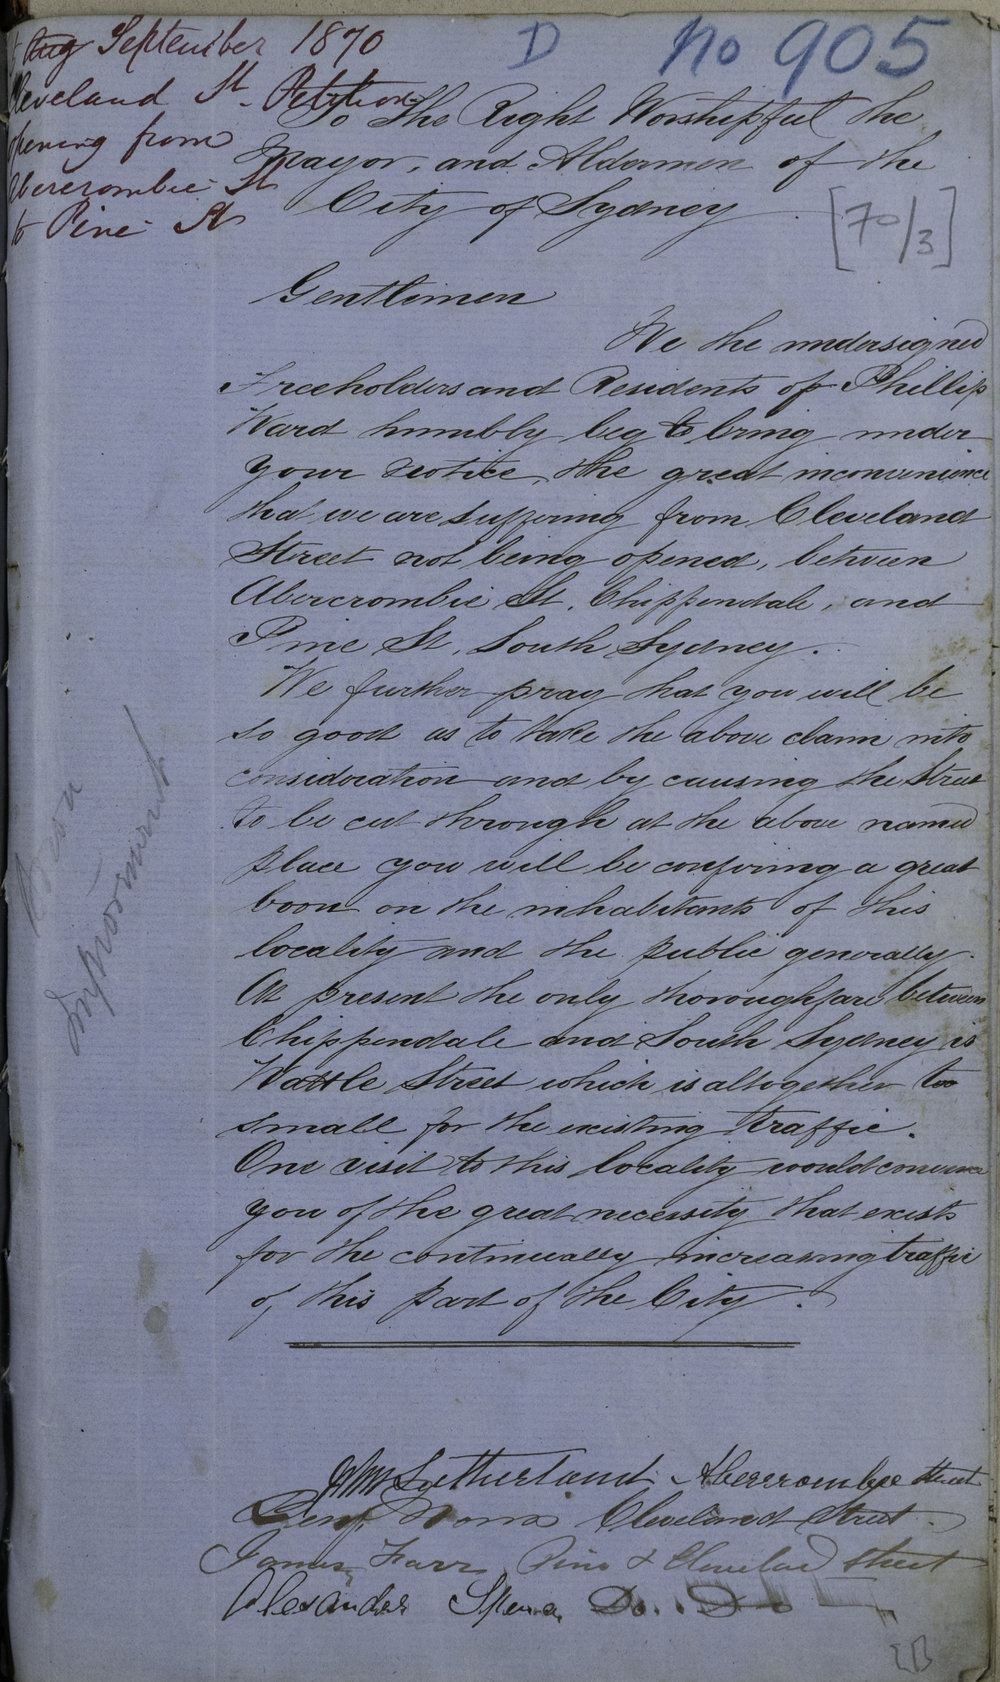 Aug September 1870
Cleveland St. Petition
opening from
Abercrombie St
to Pine St
D No 905
[70/3]
To The Right Worshipful the
Mayor, and Aldermen of the
City of Sydney
Gentlemen
We the undersigned
Freeholders and Residents of Phillip
Ward humbly beg to bring under
your notice, the great inconvenience
that we are suffering from Cleveland
Street not being opened, between
Abercrombie St, Chippendale, and
Pine St, South Sydney.
We further pray that you will be
so good as to take the above claim into
consideration and by causing the Street
to be cut through at the above named
place you will be confiring a great
boon on the inhabitants of this
locality and the public generally.
At present the only thoroughfare between
Chippendale and South Sydney is
Wattle Street which is altogether too
small for the existing traffic.
One visit to this locality would convince
you of the great necessity that exists
for the continually increasing traffic
of this part of the City.
Improvement
Wm Sutherland Abercrombie Street
Benj. Cleveland Street
James Farr Pine & Clevelad Street
Alexander Do. Do